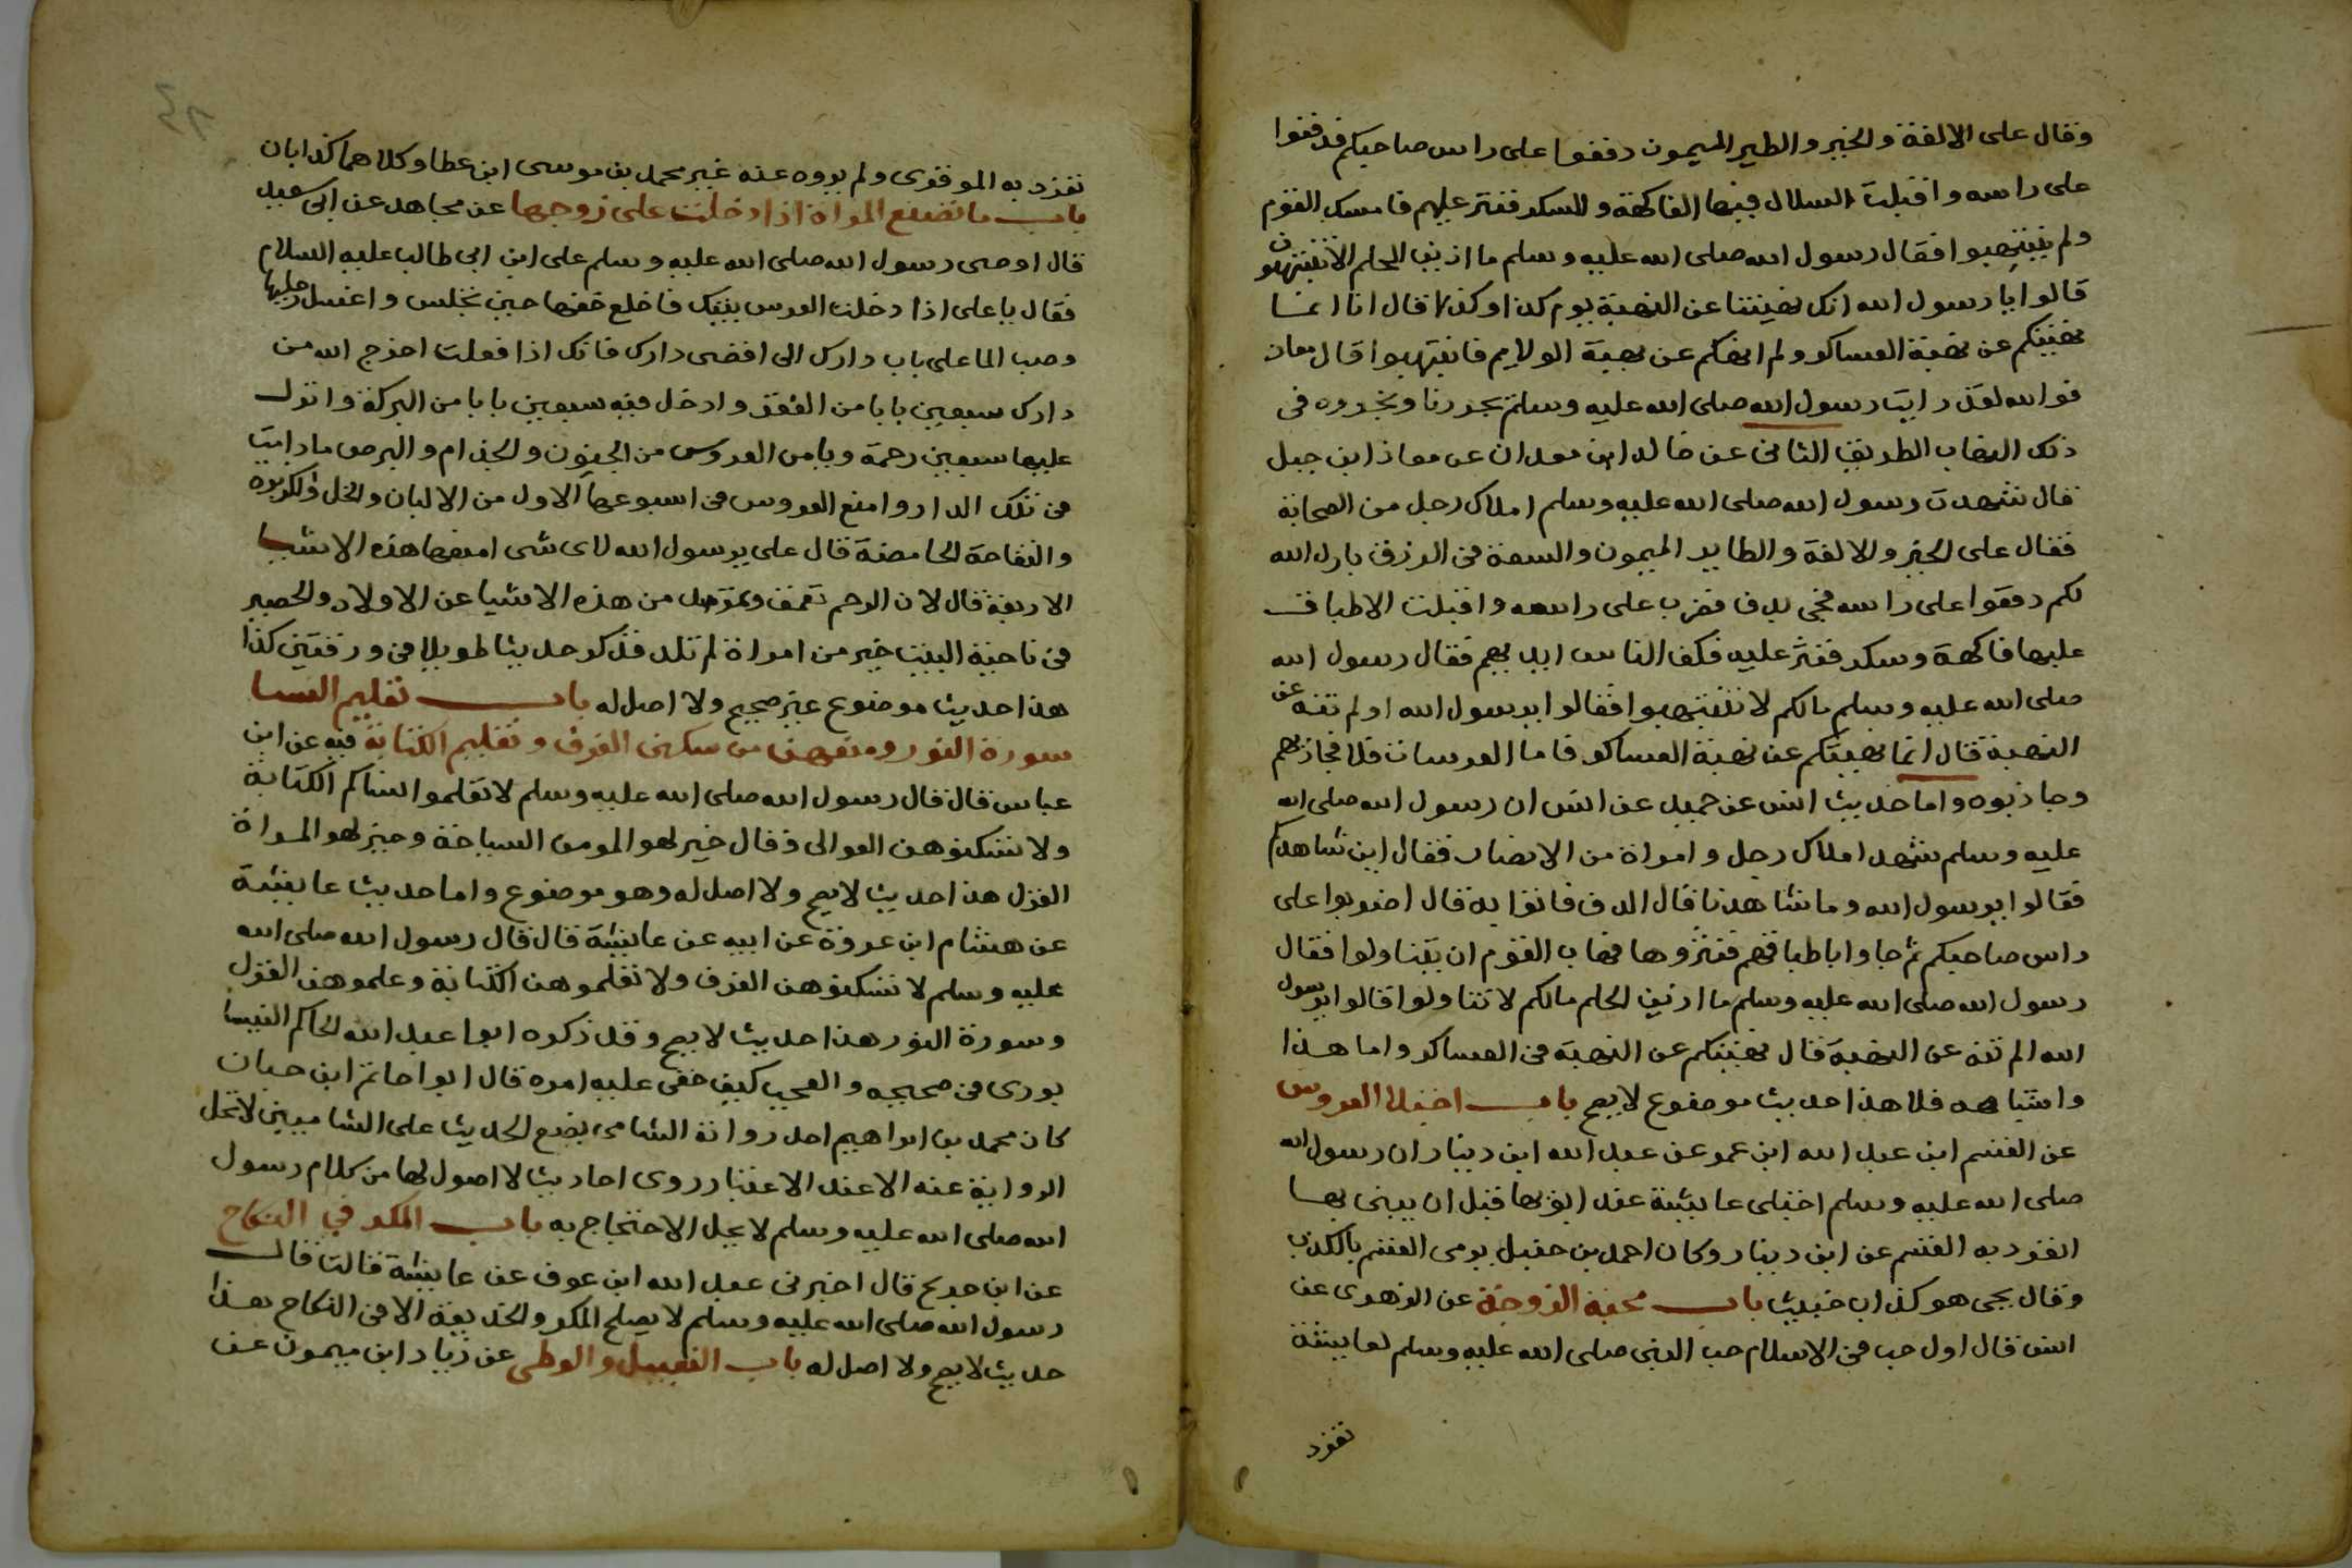 وقال على الالفة والخير والطير الميمون دففوا على راس صاحبكم فدففوا
على راسه واقبلت السلال فيها الفاكهة والسكر فنثر عليهم فامسك القوم
ولم ينتهبوا فقال رسول الله صلى الله عليه وسلم ما ازين الحلم الا تنتهبون
قالوا يا رسول الله انك نهيتنا عن النهبة يوم كذا وكذا قال انا انما
نهيتكم عن نهبة العساكر ولم انهكم عن نهبة الولايم فانتهبوا قال معاذ
فوالله لقد رايت رسول الله صلى الله عليه وسلم يجررنا ونجرره في
ذلك النهاب الطريق الثانى عن خالد ابن معدان عن معاذ ابن جبل
قال شهدت رسول الله صلى الله عليه وسلم املاك رجل من الصحابة
فقال على الخير والالفة والطاير الميمون والسعة في الرزق بارك الله
لكم دففوا على راسه فجى بدف فضرب على راسه واقبلت الاطباق
عليها فاكهة وسكر فنثر عليه فكف الناس ايديهم فقال رسول الله
صلى الله عليه وسلم مالكم لا تنتهبوا فقالوا يرسول الله اولم تنه عن
النهبة قال انما نهيتكم عن نهبة العساكر فاما العرسات فلا فجاذبهم
وجاذبوه واما حديث انس عن حميد عن انس ان رسول الله صلى الله
عليه وسلم شهد املاك رجل وامراة من الانصار فقال اين شاهدكم
فقالوا يرسول الله وما شاهدنا قال الدف فاتوا به قال اضربوا على
راس صاحبكم ثم جاوا باطباقهم فنثروها فهاب القوم ان يتناولوا فقال
رسول الله صلى الله عليه وسلم ما ازين الحلم مالكم لا تتناولوا قالوا يرسول
الله الم تنه عن النهبة قال نهيتكم عن النهبة في العساكر واما هذا
واشباهه فلا هذا حديث موضوع لا يصح باب اختلا العروس
عن القسم ابن عبد الله ابن عمر عن عبد الله ابن دينار ان رسول الله
صلى الله عليه وسلم اختلى عايشة عند ابويها قبل ان يبنى بها
انفرد به القسم عن ابن دينار وكان احمد بن حنبل يرمى القسم بالكذب
وقال يحى هو كذاب خبيث باب محبة الزوجة عن الزهرى عن
انس قال اول حب في الاسلام حب النبي صلى الله عليه وسلم لعايشة
تفرد
تفرد به الموقرى ولم يروه عنه غير محمد بن موسى ابن عطا وكلاهما كذابان
باب ما تصنع المراة اذا دخلت على زوجها عن مجاهد عن ابى سعيد
قال اوصى رسول الله صلى الله عليه وسلم على ابن ابى طالب عليه السلام
فقال يا على اذا دخلت العروس بيتك فاخلع خفها حين تجلس واغسل رجليها
وصب الما على باب دارك الى اقصى دارك فانك اذا فعلت اخرج الله من
دارك سبعين بابا من الفقر وادخل فيه سبعين بابا من البركة وانزل
عليها سبعين رحمة ويامن العروس من الجنون والجذام والبرص ما دامت
في تلك الدار وامنع العروس في اسبوعها الاول من الالبان والخل والكزبره
والتفاحة الحامضة قال على يرسول الله لاى شى امنعها هذه الاشيا
الاربعة قال لان الرحم تعقف من هذه الاشيا عن الاولاد والحصير
في ناحية البيت خير من امراة لم تلد فذكر حديثا طويلا في ورقتين كذا
هذا حديث موضوع غير صحيح ولا اصل له باب تعليم النسا
سورة النور ومنعهن من سكنى الغرف وتعليم الكتابة فيه عن ابن
عباس قال قال رسول الله صلى الله عليه وسلم لا تعلموا نساكم الكتابة
ولا تسكنوهن العوالى وقال خير لهو المومن السباحة وخير لهو المراة
الغزل هذا حديث لا يصح ولا اصل له وهو موضوع واما حديث عايشة
عن هشام ابن عروة عن ابيه عن عايشة قال قال رسول الله صلى الله
عليه وسلم لا تسكنوهن الغرف ولا تعلموهن الكتابة وعلموهن الغزل
وسورة النور هذا حديث لا يصح وقد ذكره ابوا عبد الله الحاكم النيسا
بورى في صحيحه والعجب كيف خفى عليه امره قال ابوا حاتم ابن حبان
كان محمد بن ابراهيم احد رواته الشامى يضع الحديث على الشاميين لا تحل
الرواية عنه الا عند الاعتبار روى احاديث لا اصول لها من كلام رسول
الله صلى الله عليه وسلم لا يحل الاحتجاج به باب المكر في النكاح
عن ابن جريح قال اخبرنى عبد الله ابن عوف عن عايشة قالت قال
رسول الله صلى الله عليه وسلم لا يصلح المكر والخديعة الا في النكاح هذا
حديث لا يصح ولا اصل له باب التقبيل والوطى عن زياد ابن ميمون عن